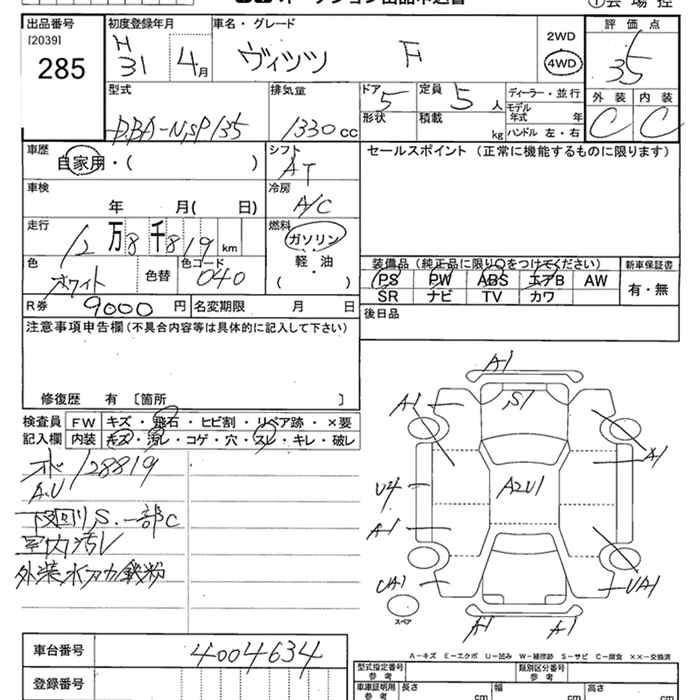 出品番号 初度登録年月 車名・グレード 2WD 評価点
[2039] 285 H 31 4月 ヴィッツ F 4WD 3.5
型式 排気量 ドア 定員 ディーラー・並行 外装 内装
DBA-NSP135 1330 cc 5 5人 モデル年式 年 C C
形状 積載 kg ハンドル 左・右
車歴 シフト セールスポイント (正常に機能するものに限ります)
自家用・( ) AT
車検 冷房
年 月( 日) A/C
走行 燃料
12万8千819 km ガソリン
色 色替 色コード 軽・油 装備品 (純正品に限り○をつけてください) 新車保証書
ホワイト 040 ( ) PS PW ABS エアB AW 有・無
SR ナビ TV カワ
R券 9000円 名変期限 月 日 後日品
注意事項申告欄 (不具合内容等は具体的に記入して下さい)
修復歴 有 〔箇所 〕
検査員 FW キズ・飛石・ヒビ割・リペア跡・×要
記入欄 内装 キズ・汚レ・コゲ・穴・スレ・キレ・破レ
128819
A.U
下回りS.一部C
室内汚レ
外装水アカ鉄粉
A1
A1 S1
A1
U4 A2U1
A1
UA1 UA1
スペア
A1 A1
A-キズ E-エクボ U-凹み W-補修跡 S-サビ C-腐食 ××-交換済
車台番号 4004634
登録番号
型式指定番号 参考 類別区分番号 参考
車庫証明用 参考 長さ cm 幅 cm 高さ cm